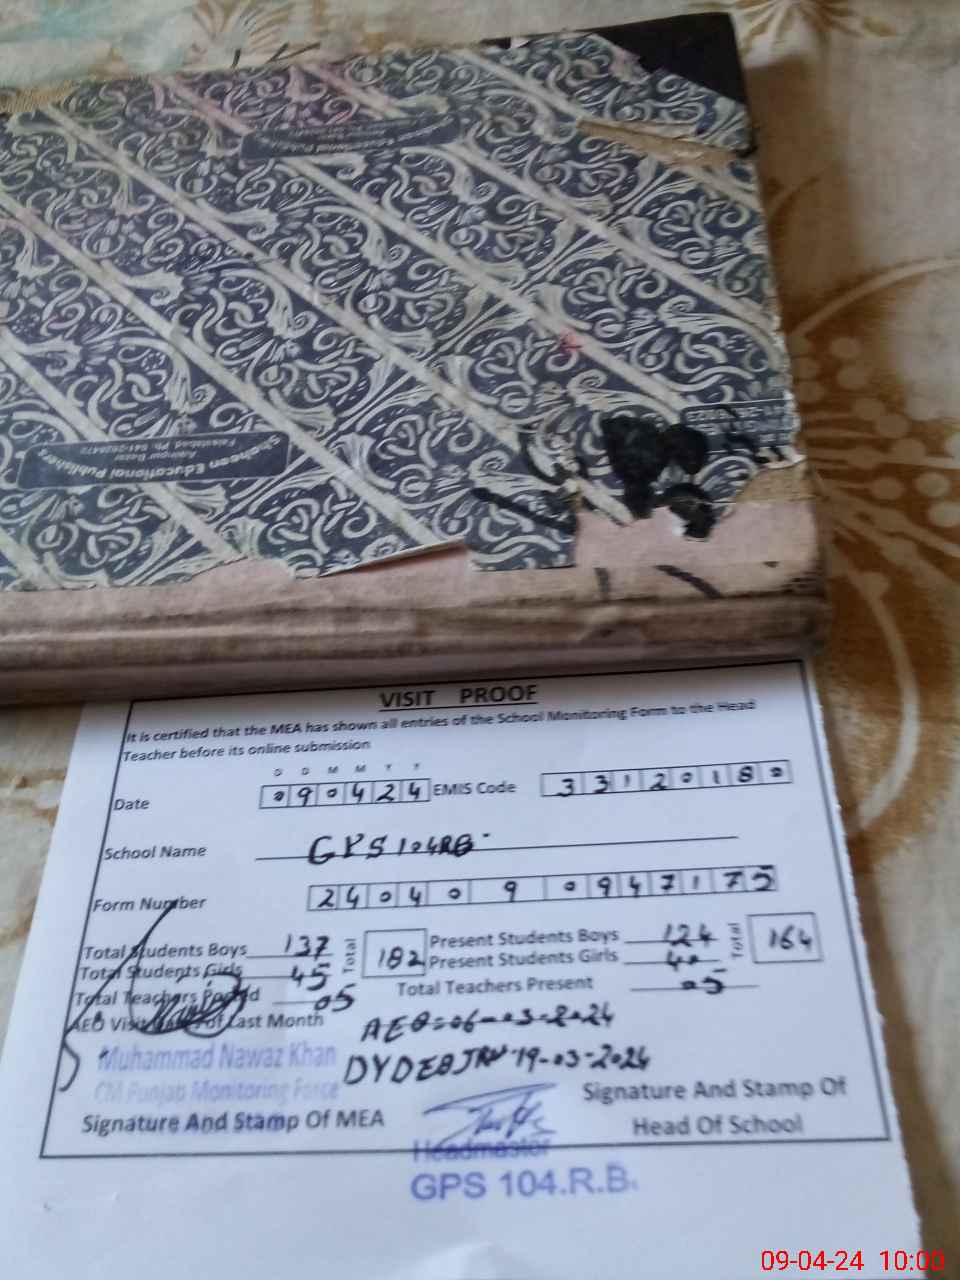 Educational Publishers
Shaheen Educational Publishers
Aminpur Bazar
Faisalabad Ph: 041-2626472
VISIT PROOF
It is certified that the MEA has shown all entries of the School Monitoring Form to the Head
Teacher before its online submission
D D M M Y Y
Date 090424 EMIS Code 33120180
School Name GPS 104RB
Form Number
Total Students Boys 137 Total 182 Present Students Boys 124 Total 164
Total Students Girls 45 Present Students Girls 40
Total Teachers Posted 05 Total Teachers Present 05
AEO Visit Date Of Last Month AEO=06-03-2024
Muhammad Nawaz Khan 19-03-2024
CM Punjab Monitoring Force
Signature And Stamp Of MEA
Signature And Stamp Of
Head Of School
Headmaster
GPS 104.R.B.
09-04-24 10:00